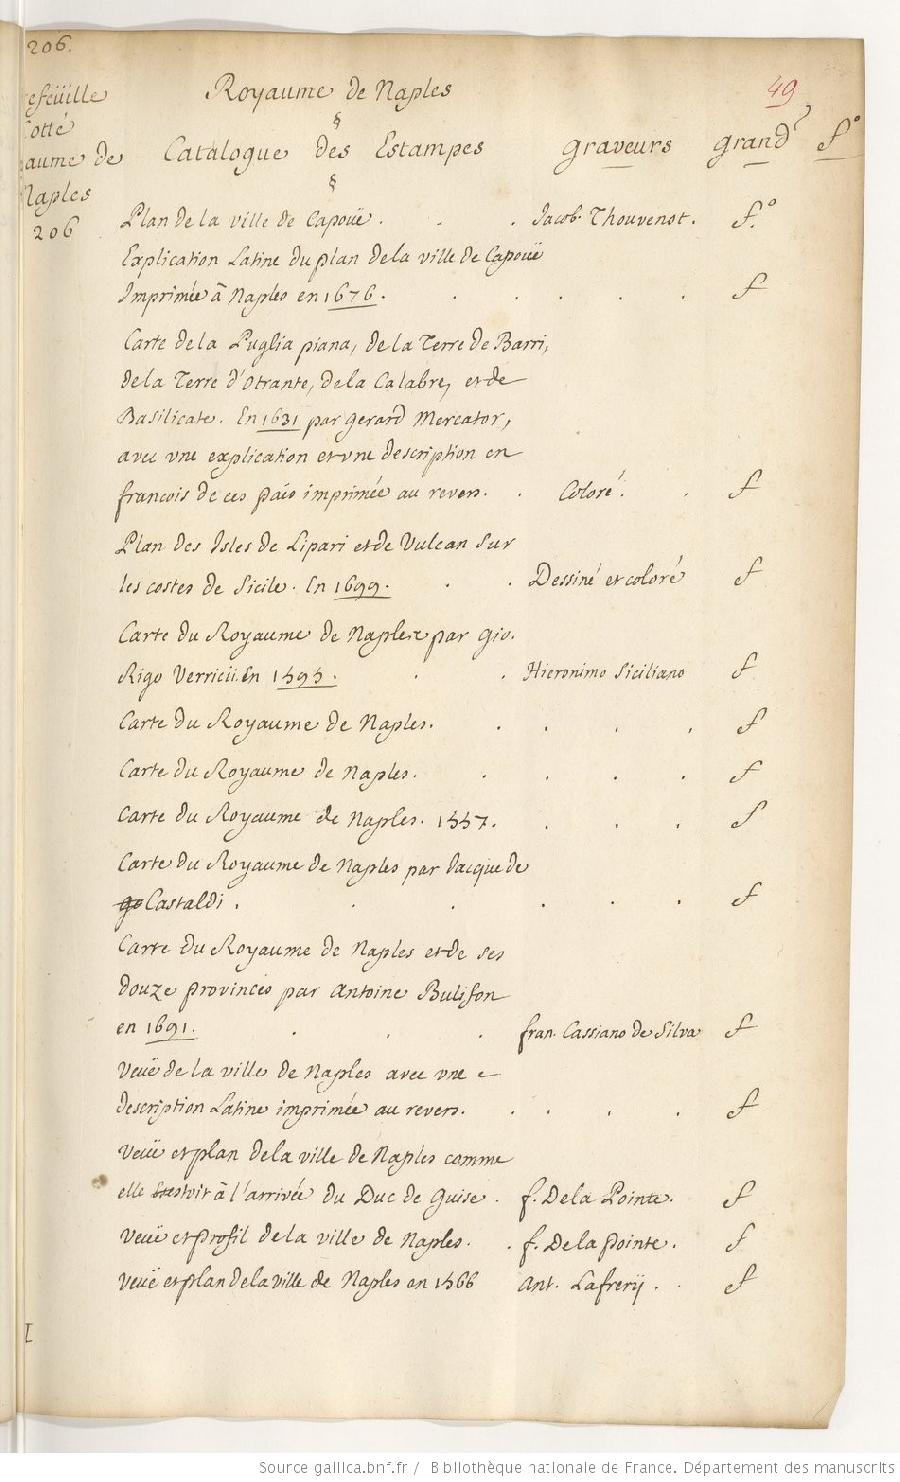 206.
Royaume de Naples
49
efeüille
Cotté
aume de
Naples
206
§
Catalogue des Estampes graveurs grandr f.°
§
Plan de la ville de Capoüe . . . Jacob Thouvenot. f.°
Explication Latine du plan de la ville de Capoüe
Imprimée à Naples en 1676. . . . . . f
Carte de la Puglia piana, de la Terre de Barri,
de la Terre d'Otrante, de la Calabre, et de
Basilicate. En 1631 par gerard Mercator,
avec vne explication et vne description en
francois de ces païs imprimée au revers. . Coloré. . f
Plan des Isles de Lipari et de Vulcan sur
les costes de Sicile. En 1699. . . Dessiné et coloré f
Carte du Royaume de Naples par Gio.
Rigo Verricii. En 1595. . . Hieronimo Siciliano f
Carte du Royaume de Naples. . . . . f
Carte du Royaume de Naples. . . . . f
Carte du Royaume de Naples. 1557. . . . f
Carte du Royaume de Naples par Jacque de
go Castaldi . . . . . . f
Carte du Royaume de Naples et de ses
douze provinces par Antoine Bulifon
en 1691. . . . fran. Cassiano de Silva f
Veuë de la ville de Naples avec vne
description Latine imprimée au revers. . . . . f
Veuë et plan de la ville de Naples comme
elle estoit à l'arrivée du Duc de Guise . f. De la Pointe. f
Veuë et profil de la ville de Naples. . f. De la pointe. f
Veuë et plan de la ville de Naples en 1566 Ant. Lafrerij . . f
I
Source gallica.bnf.fr / Bibliothèque nationale de France. Département des manuscrits